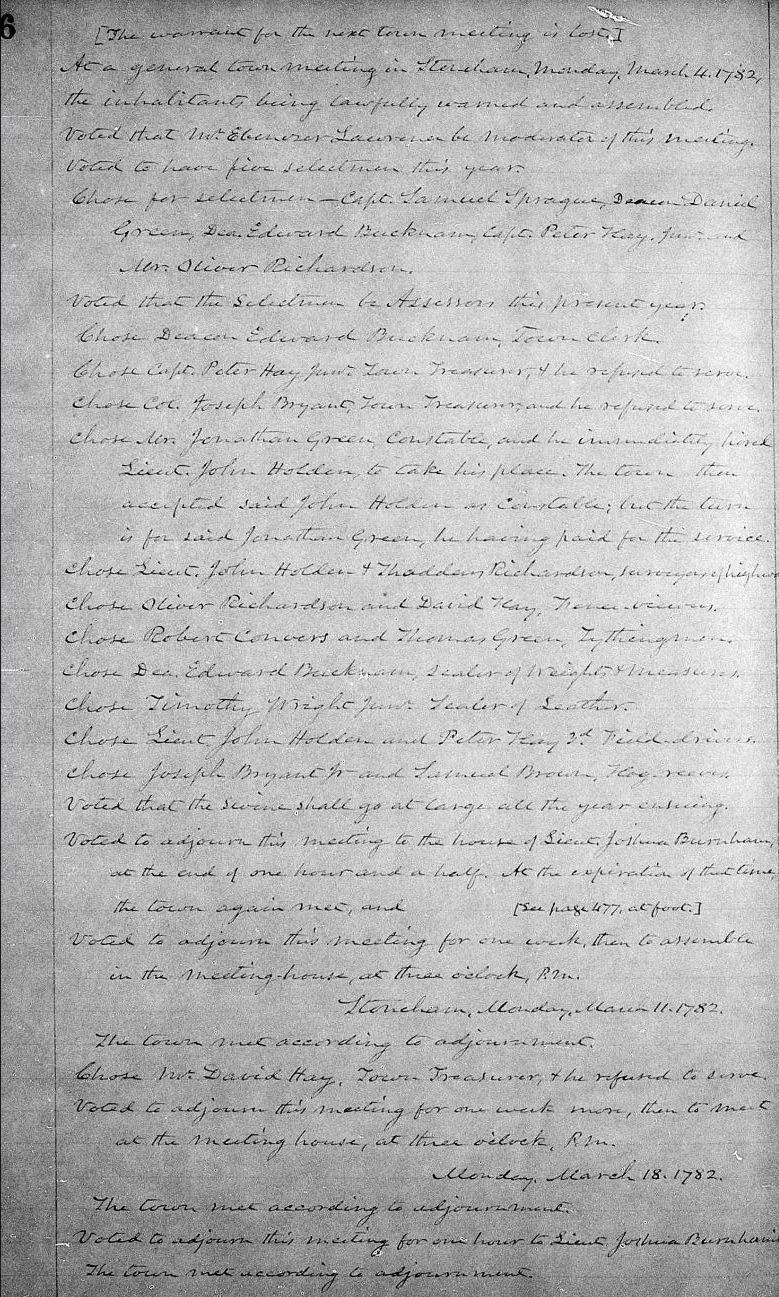 6
[The warrant for the next town meeting is lost.]
At a general town meeting in Stoneham, Monday, March 4. 1782,
the inhabitants being lawfully warned and assembled.
Voted that Mr. Ebenezer Lawrence be moderator of this meeting.
Voted to have five selectmen this year.
Chose for selectmen – Capt. Samuel Sprague, Deacon Daniel
Green, Dea. Edward Bucknam, Capt. Peter Hay, Junr. and
Mr. Oliver Richardson.
Voted that the Selectmen be Assessors this present year.
Chose Deacon Edward Bucknam, Town Clerk.
Chose Capt. Peter Hay Junr. Town Treasurer, & he refused to serve.
Chose Col. Joseph Bryant, Town Treasurer, and he refused to serve.
Chose Mr. Jonathan Green, Constable, and he immediately hired
Lieut. John Holden, to take his place. The town then
accepted said John Holden as Constable; but the turn
is for said Jonathan Green, he having paid for the service.
Chose Lieut. John Holden & Thaddeus Richardson, surveyors of highwa
Chose Oliver Richardson and David Hay, Fence-viewers.
Chose Robert Convers and Thomas Green, Tythingmen.
Chose Dea. Edward Bucknam, Sealer of Weights & Measures.
Chose Timothy Wright Junr. Sealer of Leather.
Chose Lieut. John Holden and Peter Hay 3d. Field-drivers.
Chose Joseph Bryant Jr and Samuel Brown, Hog-reeves.
Voted that the swine shall go at large all the year ensuing.
Voted to adjourn this meeting to the house of Lieut. Joshua Burnham,
at the end of one hour and a half. At the expiration of that time,
the town again met, and [See page 477, at foot.]
Voted to adjourn this meeting for one week, then to assemble
in the meeting-house, at three o'clock, P.M.
Stoneham, Monday, March 11. 1782.
The town met according to adjournment.
Chose Mr. David Hay, Town Treasurer, & he refused to serve.
Voted to adjourn this meeting for one week more, then to meet
at the meeting house, at three o'clock, P.M.
Monday, March 18. 1782.
The town met according to adjournment.
Voted to adjourn this meeting for one hour to Lieut. Joshua Burnham's
The town met according to adjournment.